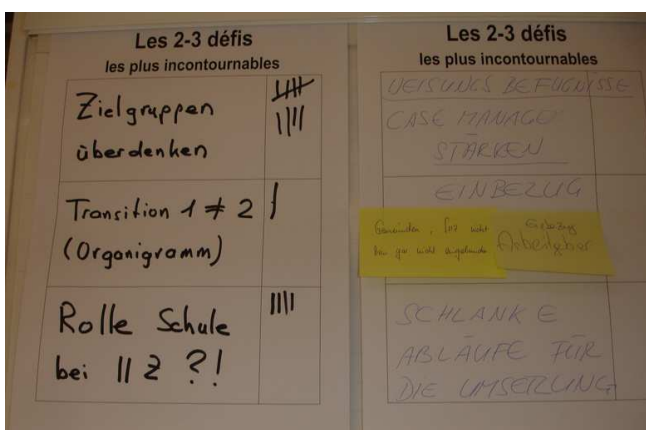 Les 2-3 défis
les plus incontournables
Zielgruppen
überdenken
Transition 1 ≠ 2
(Organigramm)
Rolle Schule
bei II Z ?!
Les 2-3 défis
les plus incontournables
WEISUNGSBEFUGNISSE
CASE MANAGER
STÄRKEN
EINBEZUG
Gemeinden, nicht
gar nicht
Einbezug
Arbeitgeber
SCHLANKE
ABLÄUFE FÜR
DIE UMSETZUNG